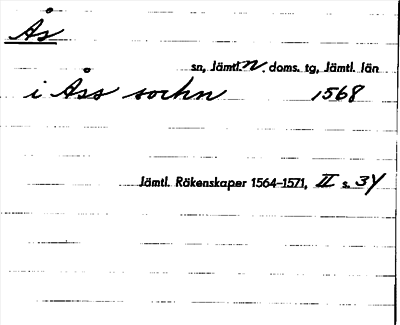 Ås
sn, Jämtl. n. doms. tg, Jämtl. län
i Åss sockn 1568
Jämtl. Räkenskaper 1564–1571, II s. 34